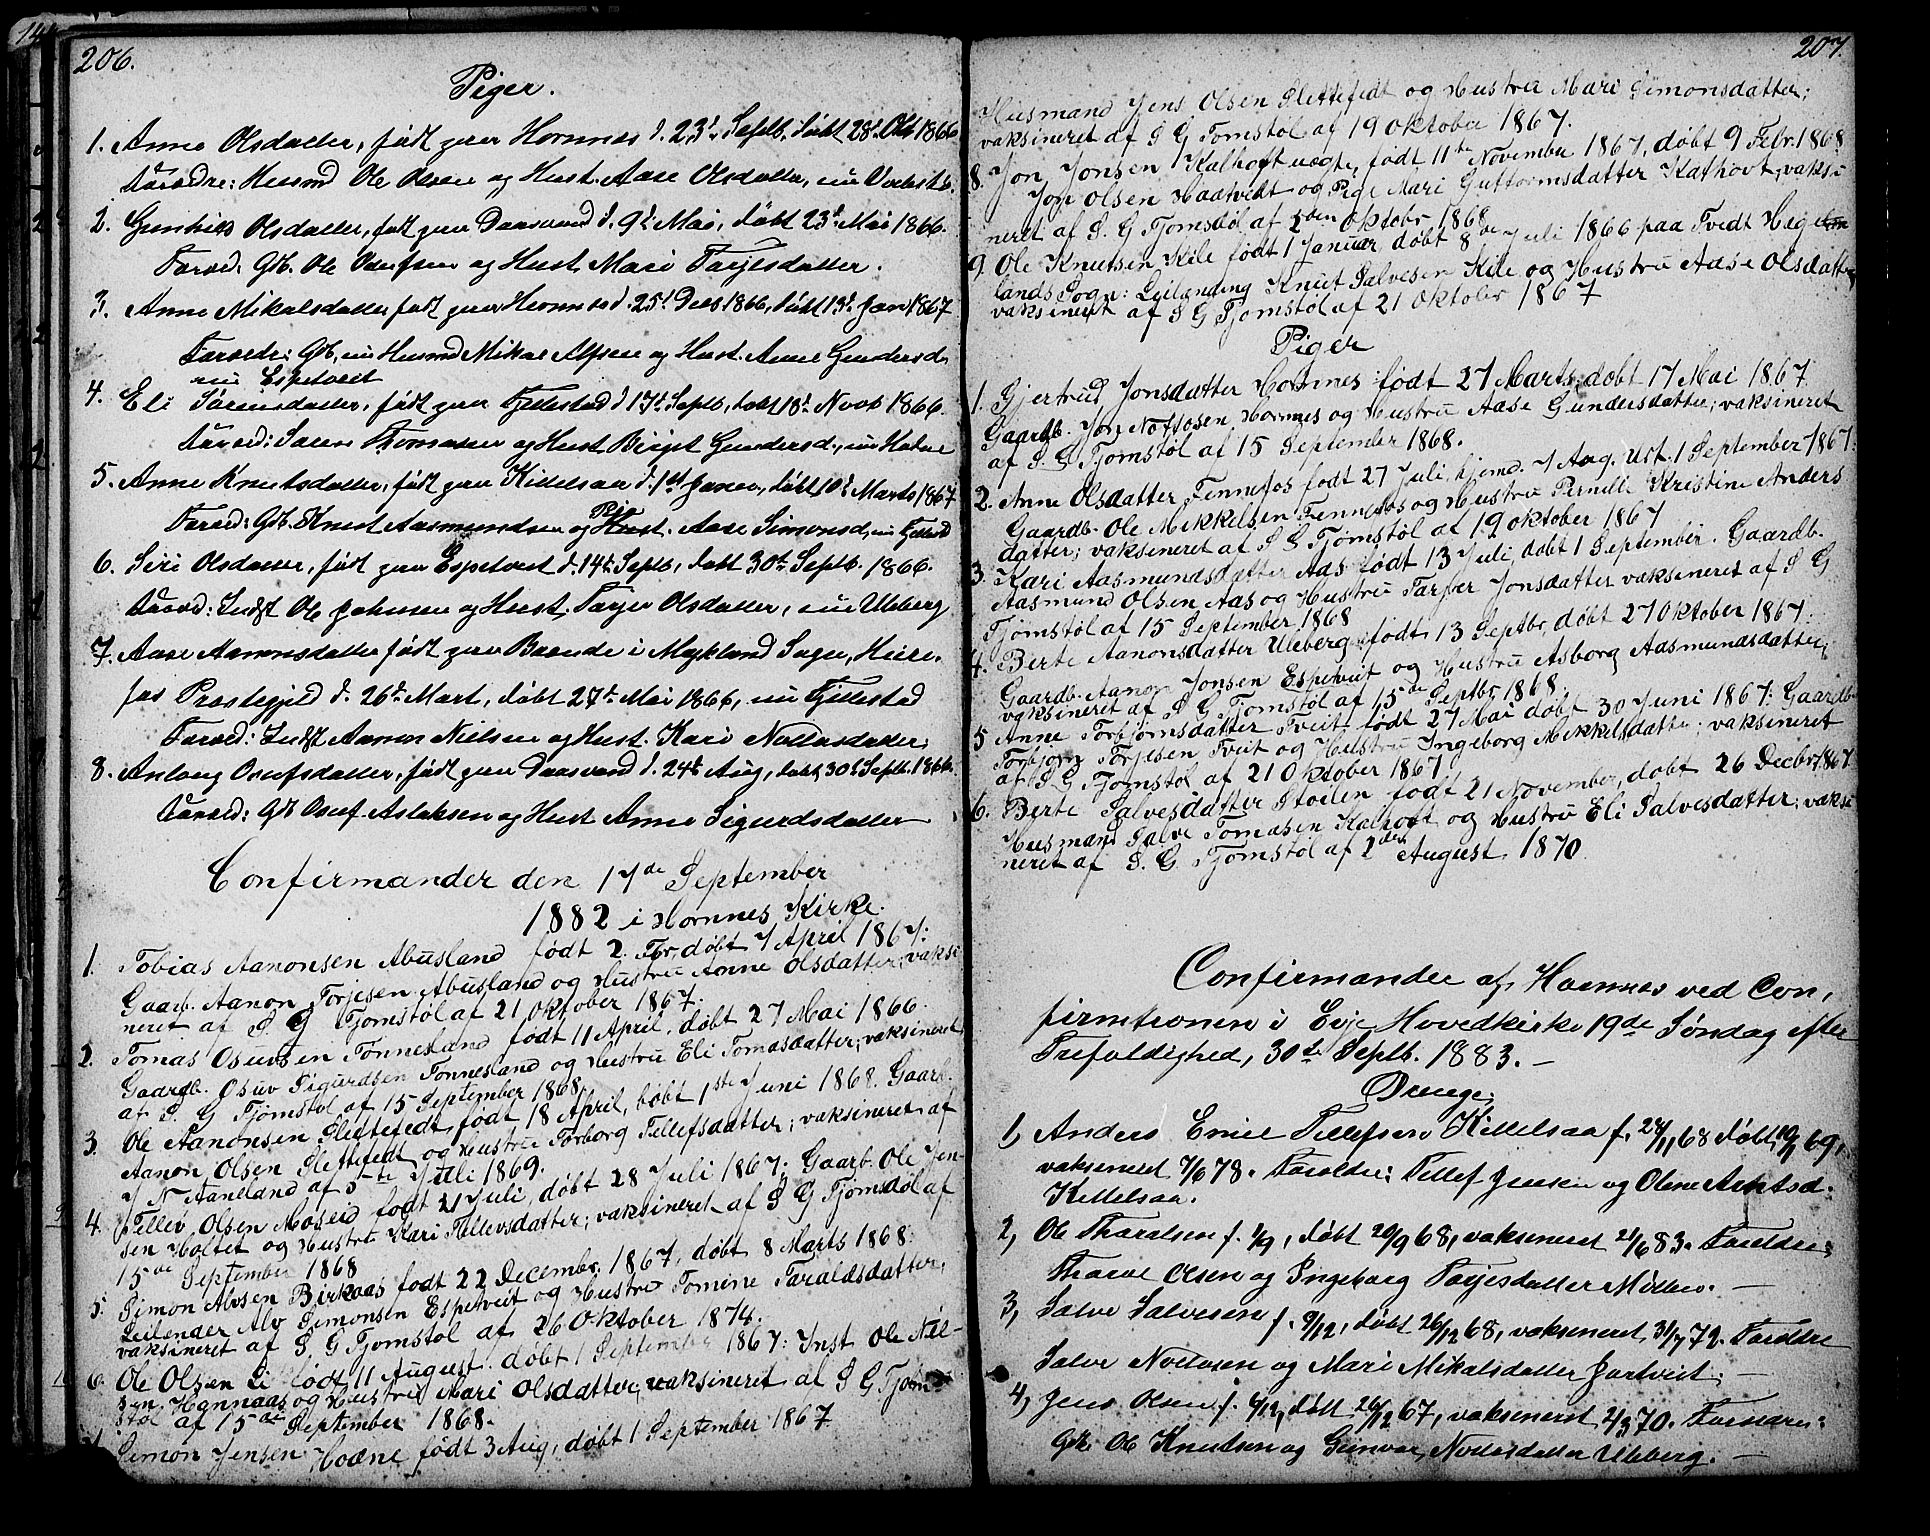 206.
Piger.
1. Anne Olsdatter, født paa Hornnes d. 23d Septb, døbt 28d Okt 1866
Forældre: Husmd Ole Olsen og Hust. Aase Olsdatter, nu
2. Gunhild Olsdatter, født paa Daasvand d. 9d Mai, døbt 23d Mai 1866.
Foræld: Gb. Ole Odufsen og Hust. Mari Tarjesdatter.
3. Anne Mikalsdatter født paa Hornnes d. 25d Decb 1866, døbt 13d Jan 1867
Forældr: Gb, nu Husmd Mikal Alfsen og Hust. Anne Gundersd.
nu Espetveit
4. Eli Sørensdatter, født paa Fjellestad d 17d Septb, døbt 18d Novb 1866.
Foræld: Søren Thomasen og Hust. Birgit Gundersd., nu Hodne
5. Anne Knutsdatter, født paa Killelsaa d. 1st Januar, døbt 10d Marts 1867
Foræld: Gb. Knut Aasmundsen og Pig Hust. Aase Simonsd, nu Fjellestad
6. Siri Olsdatter, født paa Espetveit d. 14d Septb, døbt 30d Septb. 1866.
Foræld: Indst Ole Johnsen og Hust. Torjer Olsdatter, nu Uleberg
7. Aase Aanonsdatter født paa Baande i Mykland Sogn, Heire-
fos Prestegjeld d. 26d Mart, døbt 27d Mai 1866, nu Fjellestad
Foræld: Indst Aanon Nielsen og Hust. Kari Nottosdatter.
8. Anlaug Osufsdatter, født paa Daasvand d. 24d Aug, døbt 30d Septb. 1866.
Foræld: Gb Osuf Aslaksen og Hust Anne Sigurdsdatter
Confirmander den 17de September
1882 i Hornnes Kirke.
1. Tobias Aanonsen Abusland født 2. Fbr, døbt 7 April 1867:
Gaarb. Aanon Torjesen Abusland og Hustru Anne Olsdatter; vaksi
neret af S G Tjomstøl af 21 Oktober 1867.
2. Tomas Osuvsen Tønnesland født 11 April, døbt 27 Mai 1866.
Gaardb. Osuv Sigurdsen Tonnesland og Hustru Eli Tomasdatter; vaksineret
af S. G Tjømstøl af 15 September 1868.
3. Ole Aanonsen Slettefedt født 18 April, bøbt 1ste Juni 1868. Gaarb.
Aanon Olsen Slettefedt og Hustru Torborg Tellefsdatter; vaksineret af
J N Aaneland af 5te Juli 1869.
4. Tellev Olsen Moseid født 21 Juli, døbt 28 Juli 1867; Gaarb. Ole Jen-
sen Holtet og Hustru Kari Tellevsdatter; vaksineret af S G Tjømsdøl af
15de September 1868
5. Simon Alvsen Birkaas født 22 Decembr. 1867, døbt 8 Marts 1868:
Leilender Alv Simonsen Espetveit og Hustru Tomine Taraldsdatter;
vaksineret af S. G Tjomstøl af 26 Oktober 1874.
6. Ole Olsen Li født 11 August. døbt 1 September 1867: Inst Ole Nil-
sen. Hannaas og Hustru Mari Olsdatter, vaksineret af S G Tjom-
støl af 15de September 1868.
Simon Jensen Hodne født 3 Aug, døbt 1 September 1867
207.
Husmand Jens Olsen Slettefedt og Hustru Mari Simonsdatter;
vaksineret af S G Tomstøl af 19 Oktober 1867.
8. Jon Jonsen Kalhoft uægte, født 11te November 1867, døbt 9 Febr. 1868
Jon Olsen Haatvedt og Pige Mari Guttormsdatter Kathovt, vaksi
neret af S. G Tjomstøl af 2den Oktobr 1868
9. Ole Knutsen Kile født 1 Januar døbt 8de Juli 1866 paa Tvedt Hægelan
lands Sogn: Leilænding Knut Salvesen Kile og Hustru Aase Olsdatter
vaksineret af S G Tjomstøl af 21 Oktober 1867
Piger
1. Gjertrud Jonsdatter Hornnes født 27 Marts, døbt 17 Mai 1867.
Gaardb. Jon Nottosen Hornnes og Hustru Aase Gundersdatter; vaksineret
af S. G Tjomstøl af 15 September 1868.
2. Anne Olsdatter Fennefos født 27 Juli, hjemd. 7 Aug. Udf. 1 September 1867:
Gaardb. Ole Mikkelsen Fennefos og Hustru Pernille Kristine Anders
datter; vaksineret af S G Tjømstøl af 19 Oktober 1867
3. Kari Aasmundsdatter Aas født 13 Juli døbt 1 September. Gaardb.
Aasmund Olsen Aas og Hustru Tarjær Jonsdatter vaksineret af S G
Tjømstøl af 15 September 1868
4. Berte Aanonsdatter Uleberg født 13 Septbr, døbt 27 Oktober 1867.
Gaardb. Aanon Jonsen Espetveit og Hustru Asborg Aasmundsdatter;
vaksineret af S G Tjomstøl af 15de Septbr 1868
5 Anne Torbjørnsdatter Tveit født 27 Mai døbt 30 Juni 1867: Gaardb
Torbjørn Torjesen Tveit og Hustru Ingeborg Mikkelsdatter; vaksineret
af S G Tjomstøl af 21 Oktober 1867
6. Berte Salvesdatter Støilen født 21 November, døbt 26 Decbr 1867
Husmand Salve Tomasen Kalhovt og Hustru Eli Salvesdatter; vaksi
neret af S. G Tjømstøl af 2den August 1870
Confirmander af Hornnes ved Con,
firmtionen i Evje Hovedkirke 19de Søndag efter
Trefoldighed, 30te Septb. 1883. —
Drenge.
1, Anders Emil Tellefsen Killelsaa f. 24/11 68 døbt 10/1 69,
vaksineret 7/6 78. Forældre: Tellef Jensen og Oline Arntsd.
Killelsaa.
2, Ole Tharalsen f. 1/9, døbt 20/9 68, vaksineret 21/6 83. Forældre:
Tharal Olsen og Ingeborg Tarjesdatter Moseid. —
3, Salve Salvesen f. 9/12, døbt 26/12 68, vaksineret 31/7 72. Forældre
Salve Nottosen og Mari Mikalsdatter Jortveit. —
4, Jens Olsen f. 6/12, døbt 26/12 67, vaksineret 2/3 70. Forældre:
Gb. Ole Knutsen og Gunvor Nottosdatter Uleberg. —